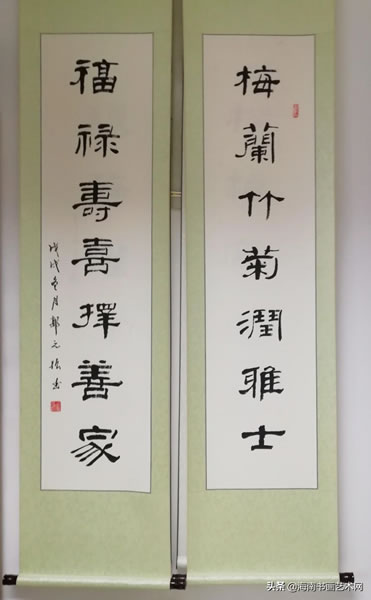 梅蘭竹菊潤雅士
福禄壽喜擇善家
戊戌冬月郝元振書
头条 @海南书画艺术网